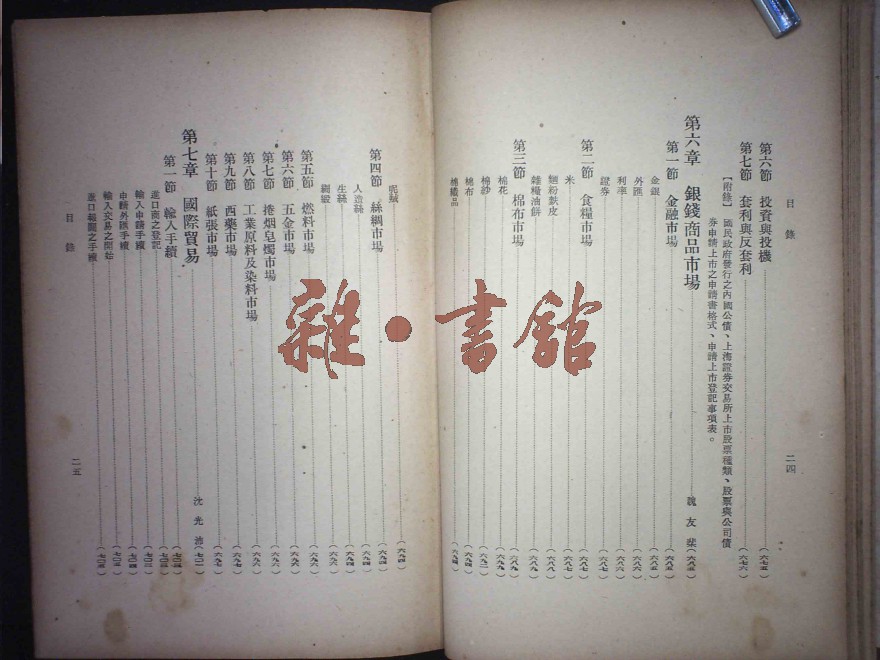 目錄
二四
第六節 投資與投機 (六七五)
第七節 套利與反套利 (六七六)
【附錄】國民政府發行之內國公債、上海證券交易所上市股票種類、股票與公司債
券申請上市之申請書格式、申請上市登記事項表。
第六章 銀錢商品市場 魏友棐 (六八五)
第一節 金融市場 (六八五)
金銀 (六八五)
外匯 (六八六)
利率 (六八六)
證券 (六八七)
第二節 食糧市場 (六八七)
米 (六八七)
麵粉麩皮 (六八八)
雜糧油餅 (六八八)
第三節 棉布市場 (六八九)
棉花 (六八九)
棉紗 (六九二)
棉布 (六九四)
棉織品 (六九四)
呢絨 (六九四)
第四節 絲綢市場 (六九四)
人造絲 (六九四)
生絲 (六九四)
綢緞
第五節 燃料市場 (六九六)
第六節 五金市場 (六九六)
第七節 捲烟皂燭市場 (六九六)
第八節 工業原料及染料市場 (六九六)
第九節 西藥市場 (六九七)
第十節 紙張市場 (六九七)
第七章 國際貿易 沈光沛
第一節 輸入手續
進口商之登記
輸入申請手續
申請外匯手續
輸入交易之開始
進口報關之手續
目錄
二五
雜·書館